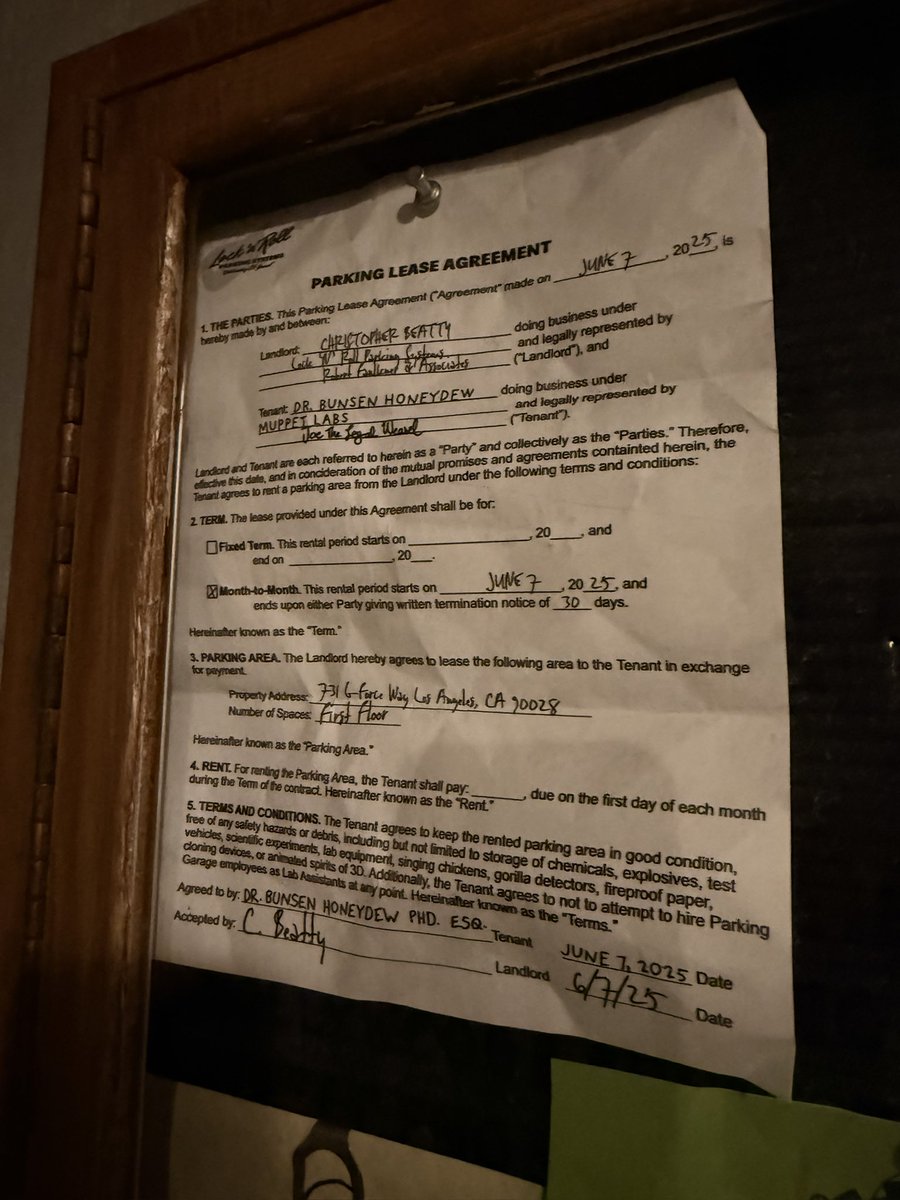 Lock 'n Roll
PARKING SYSTEMS
PARKING LEASE AGREEMENT
1. THE PARTIES. This Parking Lease Agreement ("Agreement" made on JUNE 7, 2025, is
hereby made by and between:
Landlord: CHRISTOPHER BEATTY doing business under
Lock 'N' Roll Parking Systems and legally represented by
Robert Faulkner & Associates ("Landlord"), and
Tenant: DR. BUNSEN HONEYDEW doing business under
MUPPET LABS and legally represented by
Joe The Legal Weasel ("Tenant").
Landlord and Tenant are each referred to herein as a "Party" and collectively as the "Parties." Therefore,
effective this date, and in concideration of the mutual promises and agreements containted herein, the
Tenant agrees to rent a parking area from the Landlord under the following terms and conditions:
2. TERM. The lease provided under this Agreement shall be for:
Fixed Term. This rental period starts on ____, 20____, and
end on ____, 20___.
☒ Month-to-Month. This rental period starts on JUNE 7, 2025, and
ends upon either Party giving written termination notice of 30 days.
Hereinafter known as the "Term."
3. PARKING AREA. The Landlord hereby agrees to lease the following area to the Tenant in exchange
for payment.
Property Address: 731 G-Force Way Los Angeles, CA 90028
Number of Spaces: First Floor
Hereinafter known as the "Parking Area."
4. RENT. For renting the Parking Area, the Tenant shall pay: ______, due on the first day of each month
during the Term of the contract. Hereinafter known as the "Rent."
5. TERMS AND CONDITIONS. The Tenant agrees to keep the rented parking area in good condition,
free of any safety hazards or debris, including but not limited to storage of chemicals, explosives, test
vehicles, scientific experiments, lab equipment, singing chickens, gorilla detectors, fireproof paper,
cloning devices, or animated spirits of 3D. Additionally, the Tenant agrees to not to attempt to hire Parking
Garage employees as Lab Assistants at any point. Hereinafter known as the "Terms."
Agreed to by: DR. BUNSEN HONEYDEW PHD. ESQ. Tenant JUNE 7, 2025 Date
Accepted by: C. Beatty Landlord 6/7/25 Date